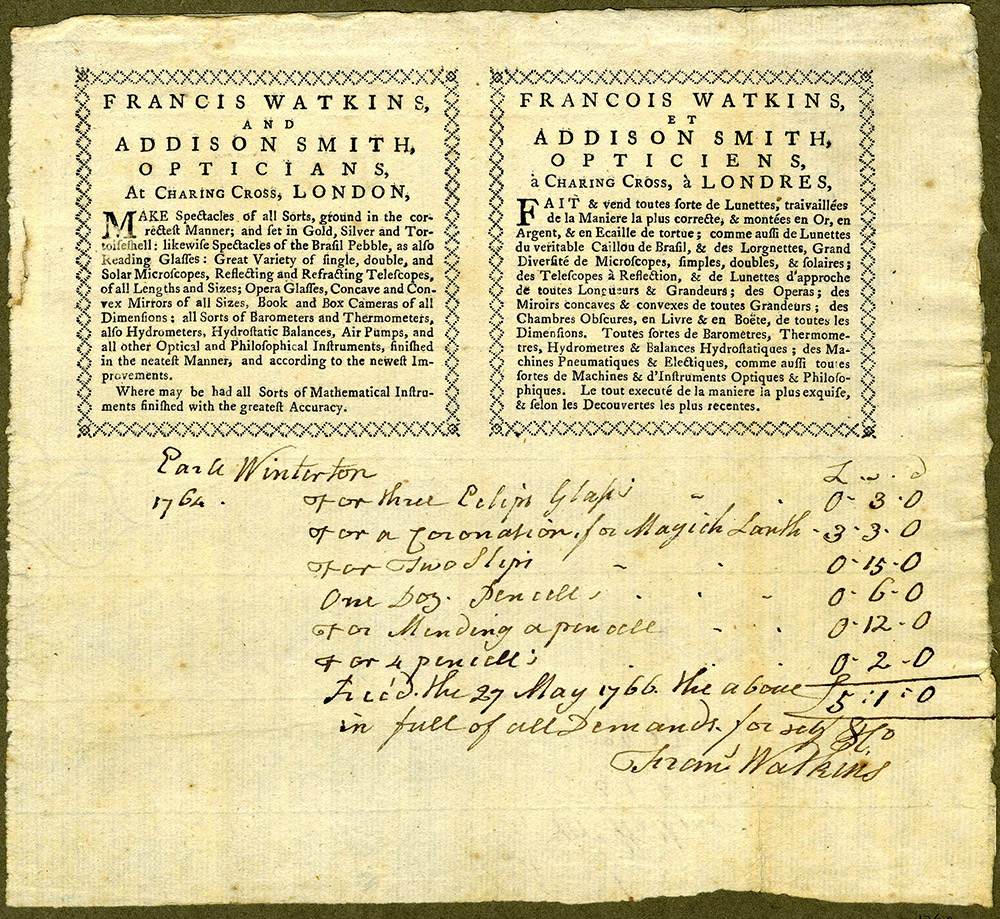 FRANCIS WATKINS,
AND
ADDISON SMITH,
OPTICIANS,
At CHARING CROSS, LONDON,
MAKE Spectacles of all Sorts, ground in the cor-
rectest Manner; and set in Gold, Silver and Tor-
toiseshell: likewise Spectacles of the Brasil Pebble, as also
Reading Glasses: Great Variety of single, double, and
Solar Microscopes, Reflecting and Refracting Telescopes,
of all Lengths and Sizes; Opera Glasses, Concave and Con-
vex Mirrors of all Sizes, Book and Box Cameras of all
Dimensions; all Sorts of Barometers and Thermometers,
also Hydrometers, Hydrostatic Balances, Air Pumps, and
all other Optical and Philosophical Instruments, finished
in the neatest Manner, and according to the newest Im-
provements.
Where may be had all Sorts of Mathematical Instru-
ments finished with the greatest Accuracy.
FRANCOIS WATKINS,
ET
ADDISON SMITH,
OPTICIENS,
à CHARING CROSS, à LONDRES,
FAIT & vend toutes sorte de Lunettes, traivaillées
de la Maniere la plus correcte, & montées en Or, en
Argent, & en Ecaille de tortue; comme aussi de Lunettes
du veritable Caillou de Brasil, & des Lorgnettes, Grand
Diversité de Microscopes, simples, doubles, & solaires;
des Telescopes à Reflection, & de Lunettes d'approche
de toutes Longueurs & Grandeurs; des Operas; des
Miroirs concaves & convexes de toutes Grandeurs; des
Chambres Obscures, en Livre & en Boëte, de toutes les
Dimensions. Toutes sortes de Barometres, Thermome-
tres, Hydrometres & Balances Hydrostatiques; des Ma-
chines Pneumatiques & Electiques, comme aussi toutes
sortes de Machines & d'Instruments Optiques & Philoso-
phiques. Le tout executé de la maniere la plus exquise,
& selon les Decouvertes les plus recentes.
Earle Winterton
£ s d
1764. For three Eclips Glass's 0-3-0
For a Coronation, for Magick Lanth - 3-3-0
For Two Slips 0-15-0
One Doz. Pencells 0-6-0
For Mending a pencell 0-12-0
For 4 pencells 0-2-0
Rec'd. the 27 May 1766 the above £5:1:0
in full of all Demands. for self & Co
Frans Watkins